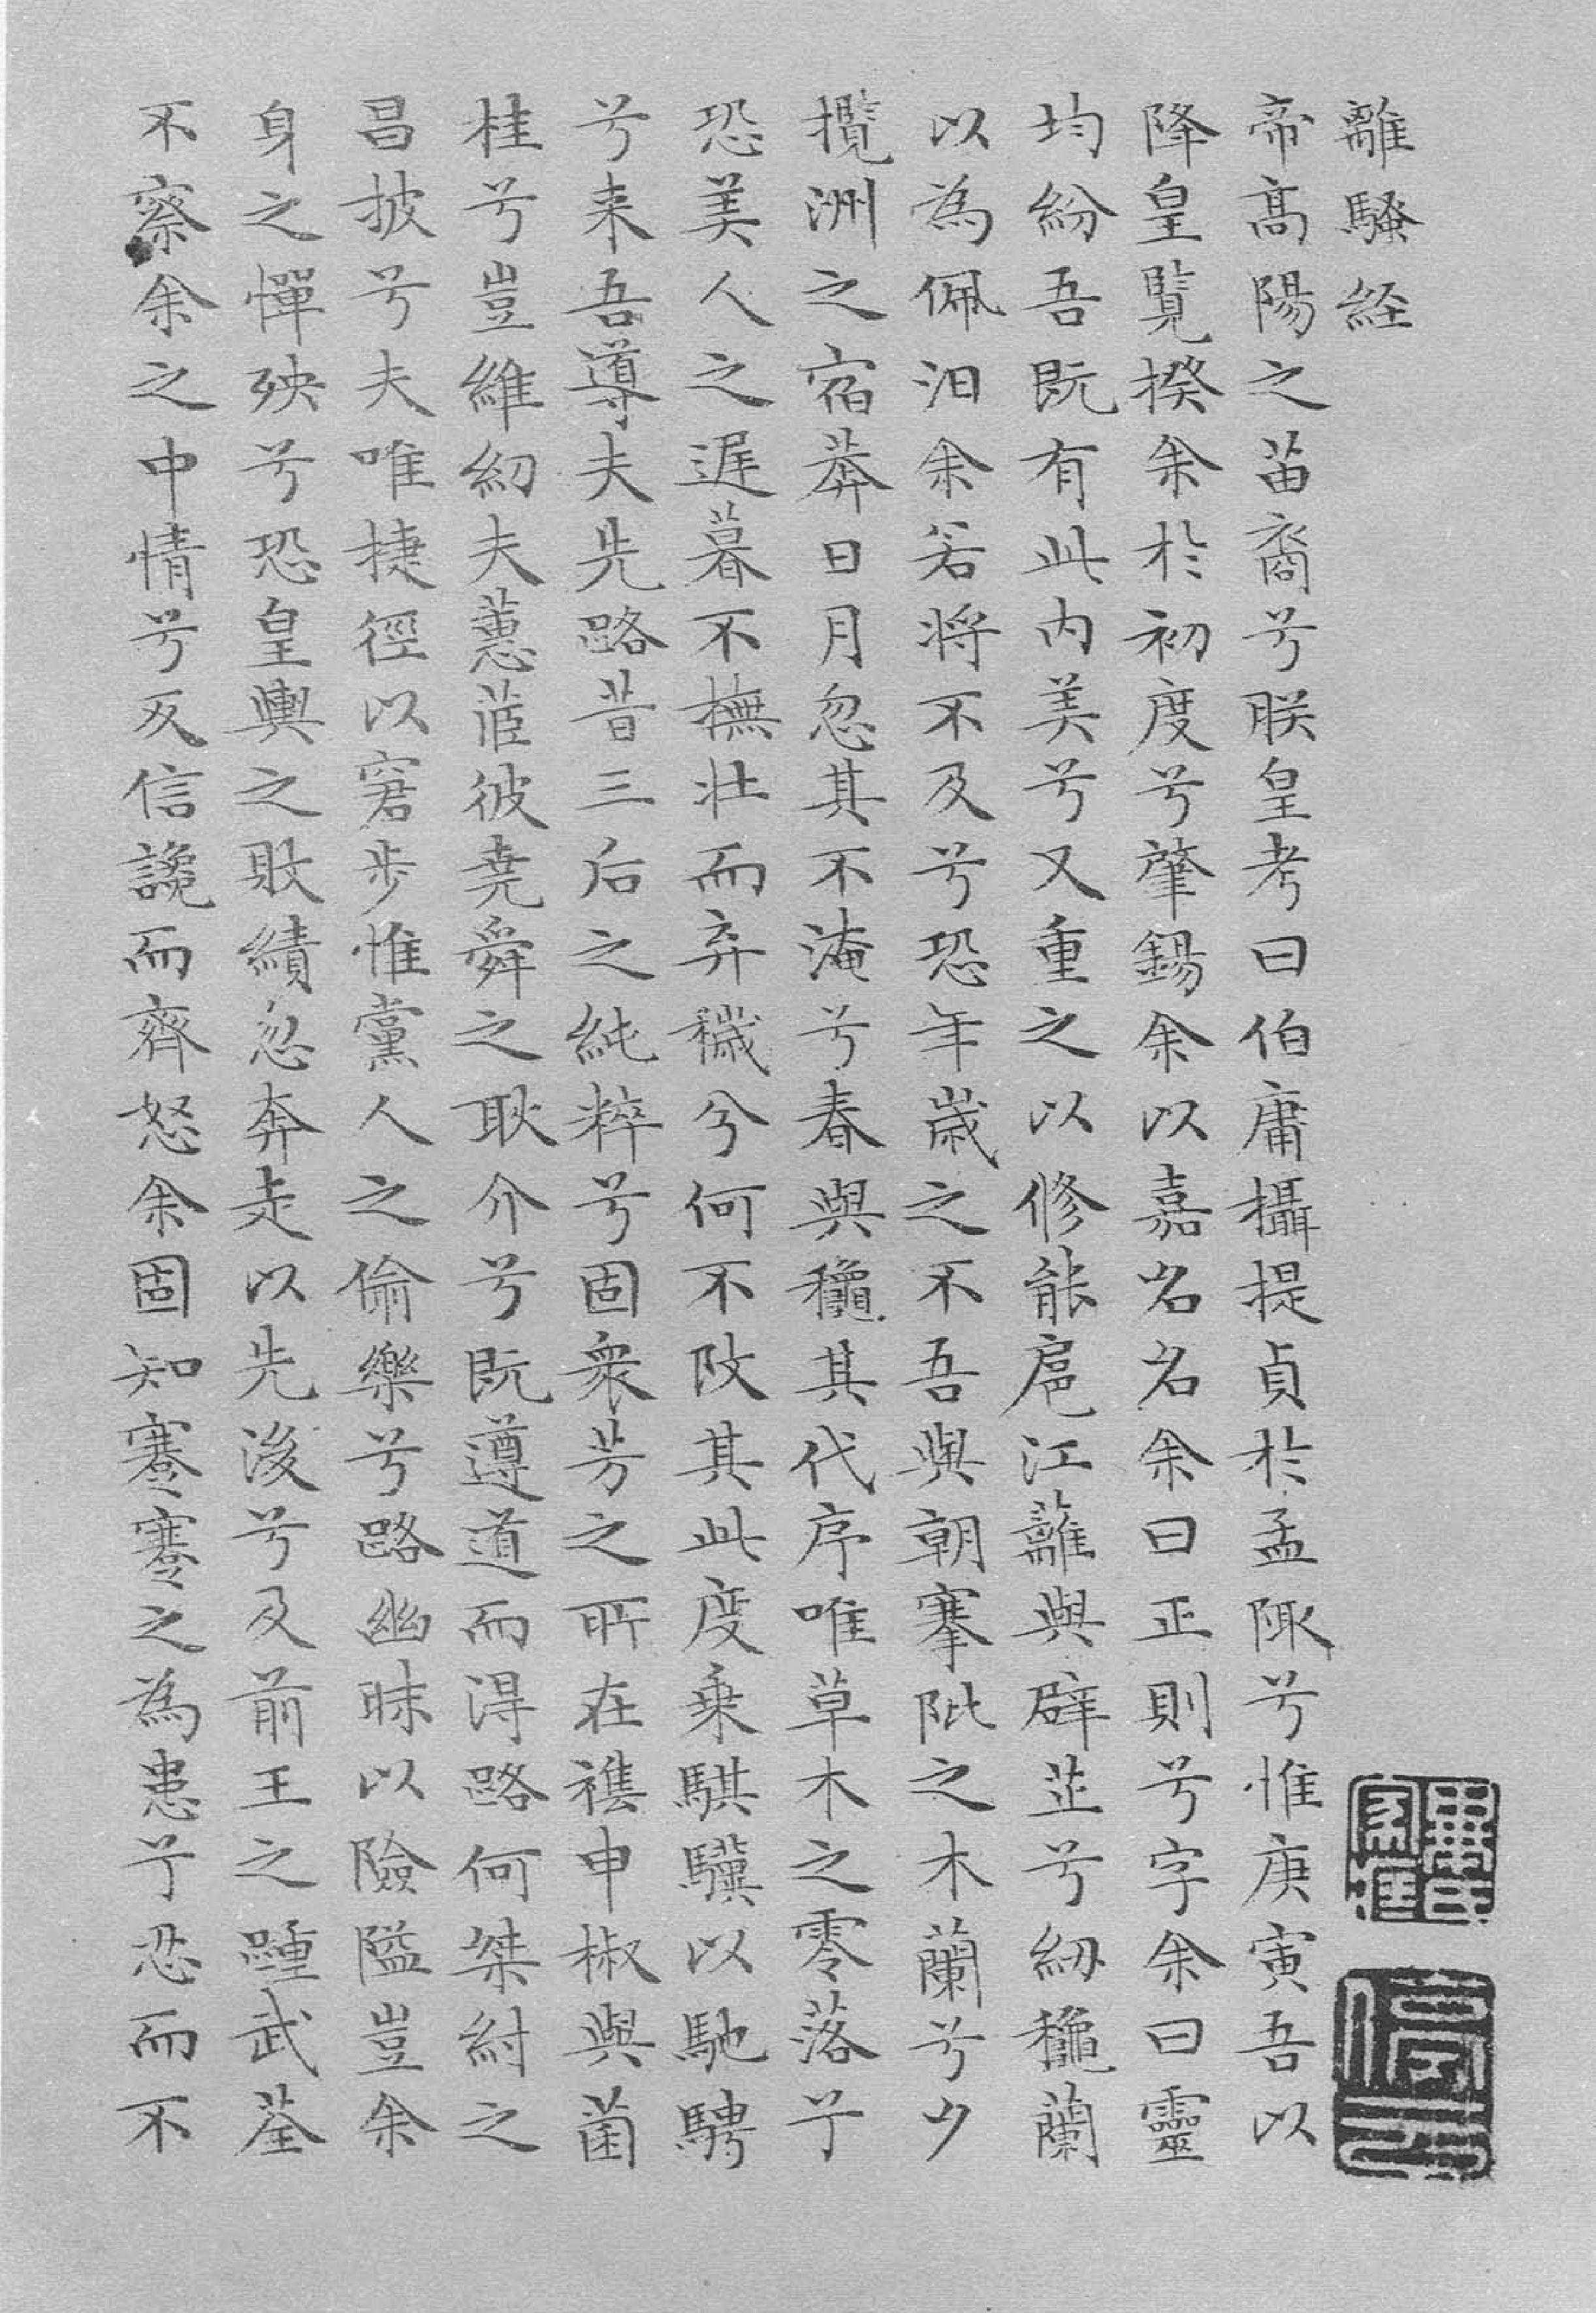 離騷経
帝高陽之苗裔兮朕皇考曰伯庸攝提貞於孟陬兮惟庚寅吾以
降皇覧揆余於初度兮肇錫余以嘉名名余曰正則兮字余曰靈
均紛吾既有此内美兮又重之以修能扈江蘺與辟芷兮紉穐蘭
以為佩汨余若将不及兮恐年歳之不吾與朝搴阰之木蘭兮夕
攬洲之宿莽日月忽其不淹兮春與龝其代序唯草木之零落兮
恐美人之遅暮不撫壮而弃穢兮何不改其此度乗騏驥以馳騁
兮来吾導夫先路昔三后之純粹兮固衆芳之所在襍申椒與菌
桂兮豈維紉夫蕙茝彼堯舜之耿介兮既遵道而得路何桀紂之
昌披兮夫唯捷徑以窘步惟黨人之偷樂兮路幽昧以險隘豈余
身之憚殃兮恐皇輿之敗績忽奔走以先後兮及前王之踵武荃
不察余之中情兮反信讒而齊怒余固知謇謇之為患兮忍而不